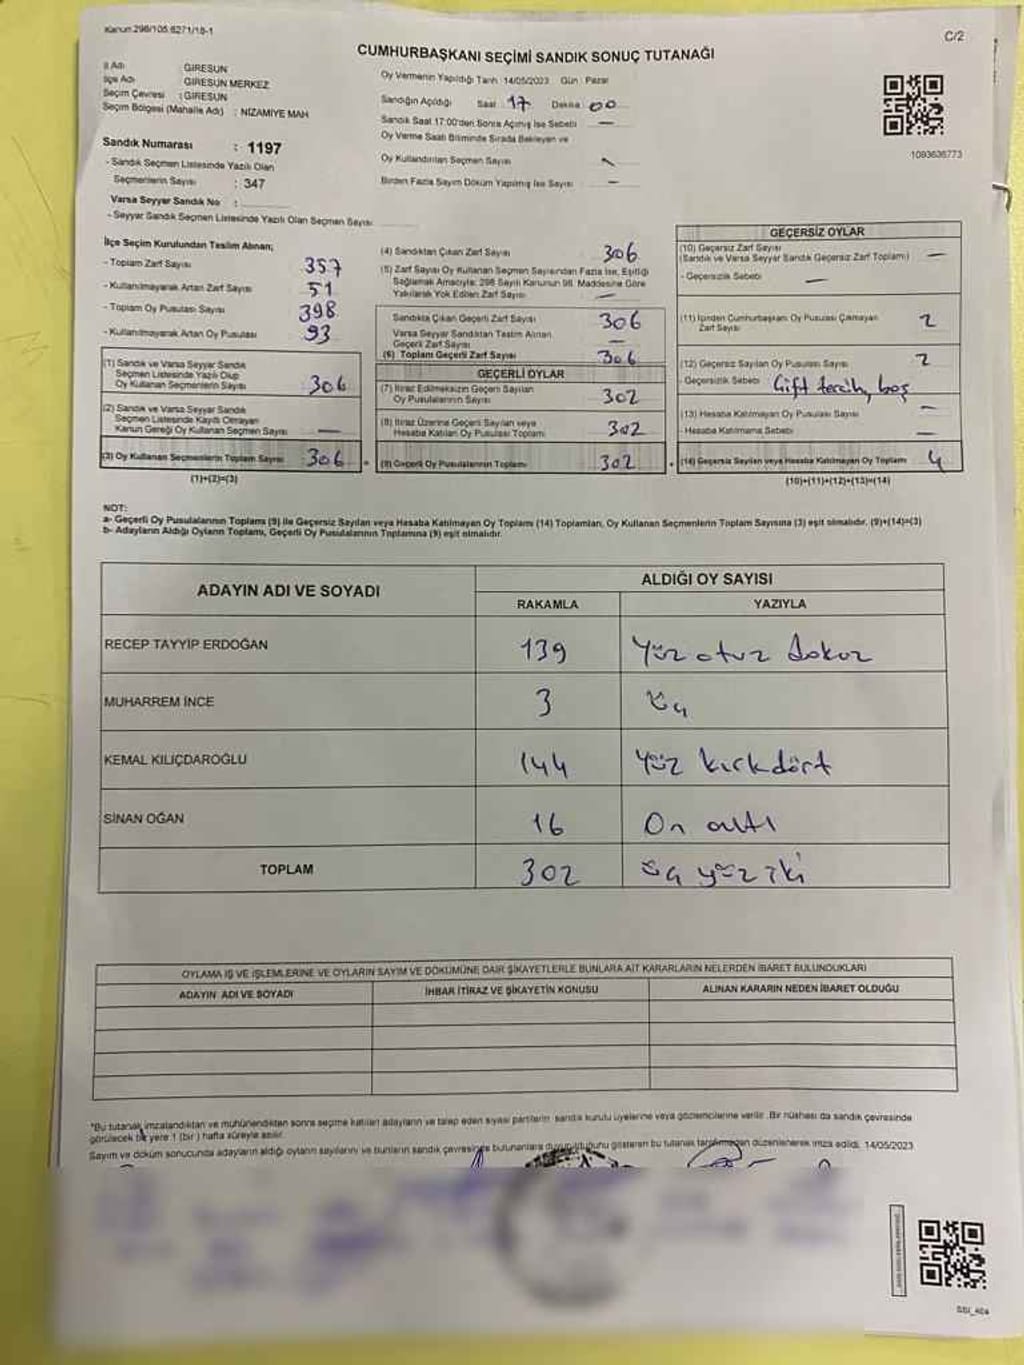 Kanun:298/105.6271/18-1
C/2
CUMHURBAŞKANI SEÇİMİ SANDIK SONUÇ TUTANAĞI
İl Adı : GİRESUN
İlçe Adı : GİRESUN MERKEZ
Seçim Çevresi : GİRESUN
Seçim Bölgesi (Mahalle Adı) : NİZAMİYE MAH
Sandık Numarası : 1197
- Sandık Seçmen Listesinde Yazılı Olan
Seçmenlerin Sayısı : 347
Varsa Seyyar Sandık No :
- Seyyar Sandık Seçmen Listesinde Yazılı Olan Seçmen Sayısı
Oy Vermenin Yapıldığı Tarih : 14/05/2023 Gün : Pazar
Sandığın Açıldığı Saat 17 Dakika 00
Sandık Saat 17:00'den Sonra Açılmış İse Sebebi —
Oy Verme Saati Bitiminde Sırada Bekleyen ve
Oy Kullandırılan Seçmen Sayısı
Birden Fazla Sayım Döküm Yapılmış İse Sayısı —
1093636773
İlçe Seçim Kurulundan Teslim Alınan;
- Toplam Zarf Sayısı 357
- Kullanılmayarak Artan Zarf Sayısı 51
- Toplam Oy Pusulası Sayısı 398
- Kullanılmayarak Artan Oy Pusulası 93
(1) Sandık ve Varsa Seyyar Sandık
Seçmen Listesinde Yazılı Olup
Oy Kullanan Seçmenlerin Sayısı 306
(2) Sandık ve Varsa Seyyar Sandık
Seçmen Listesinde Kayıtlı Olmayan
Kanun Gereği Oy Kullanan Seçmen Sayısı —
(3) Oy Kullanan Seçmenlerin Toplam Sayısı 306
(1)+(2)=(3)
(4) Sandıktan Çıkan Zarf Sayısı 306
(5) Zarf Sayısı Oy Kullanan Seçmen Sayısından Fazla İse, Eşitliği
Sağlamak Amacıyla; 298 Sayılı Kanunun 98. Maddesine Göre
Yakılarak Yok Edilen Zarf Sayısı —
Sandıkta Çıkan Geçerli Zarf Sayısı 306
Varsa Seyyar Sandıktan Teslim Alınan
Geçerli Zarf Sayısı —
(6) Toplam Geçerli Zarf Sayısı 306
GEÇERLİ OYLAR
(7) İtiraz Edilmeksizin Geçerli Sayılan
Oy Pusulalarının Sayısı 302
(8) İtiraz Üzerine Geçerli Sayılan veya
Hesaba Katılan Oy Pusulası Toplamı 302
(9) Geçerli Oy Pusulalarının Toplamı 302
GEÇERSİZ OYLAR
(10) Geçersiz Zarf Sayısı
(Sandık ve Varsa Seyyar Sandık Geçersiz Zarf Toplamı) —
- Geçersizlik Sebebi —
(11) İçinden Cumhurbaşkanı Oy Pusulası Çıkmayan
Zarf Sayısı 2
(12) Geçersiz Sayılan Oy Pusulası Sayısı 2
- Geçersizlik Sebebi Çift tercih, boş
(13) Hesaba Katılmayan Oy Pusulası Sayısı —
- Hesaba Katılmama Sebebi —
(14) Geçersiz Sayılan veya Hesaba Katılmayan Oy Toplamı 4
(10)+(11)+(12)+(13)=(14)
NOT:
a- Geçerli Oy Pusulalarının Toplamı (9) ile Geçersiz Sayılan veya Hesaba Katılmayan Oy Toplamı (14) Toplamları, Oy Kullanan Seçmenlerin Toplam Sayısına (3) eşit olmalıdır. (9)+(14)=(3)
b- Adayların Aldığı Oyların Toplamı, Geçerli Oy Pusulalarının Toplamına (9) eşit olmalıdır.
ADAYIN ADI VE SOYADI
ALDIĞI OY SAYISI
RAKAMLA YAZIYLA
RECEP TAYYİP ERDOĞAN 139 Yüz otuz dokuz
MUHARREM İNCE 3 üç
KEMAL KILIÇDAROĞLU 144 Yüz kırkdört
SİNAN OĞAN 16 On altı
TOPLAM 302 üç yüz iki
OYLAMA İŞ VE İŞLEMLERİNE VE OYLARIN SAYIM VE DÖKÜMÜNE DAİR ŞİKAYETLERLE BUNLARA AİT KARARLARIN NELERDEN İBARET BULUNDUKLARI
ADAYIN ADI VE SOYADI İHBAR İTİRAZ VE ŞİKAYETİN KONUSU ALINAN KARARIN NEDEN İBARET OLDUĞU
*Bu tutanak imzalandıktan ve mühürlendikten sonra seçime katılan adayların ve talep eden siyasi partilerin sandık kurulu üyelerine veya gözlemcilerine verilir. Bir nüshası da sandık çevresinde
görülecek bir yere 1 (bir) hafta süreyle asılır.
Sayım ve döküm sonucunda adayların aldığı oyların sayılarını ve bunların sandık çevresinde bulunanlara duyurulduğunu gösteren bu tutanak tarafımızdan düzenlenerek imza edildi. 14/05/2023